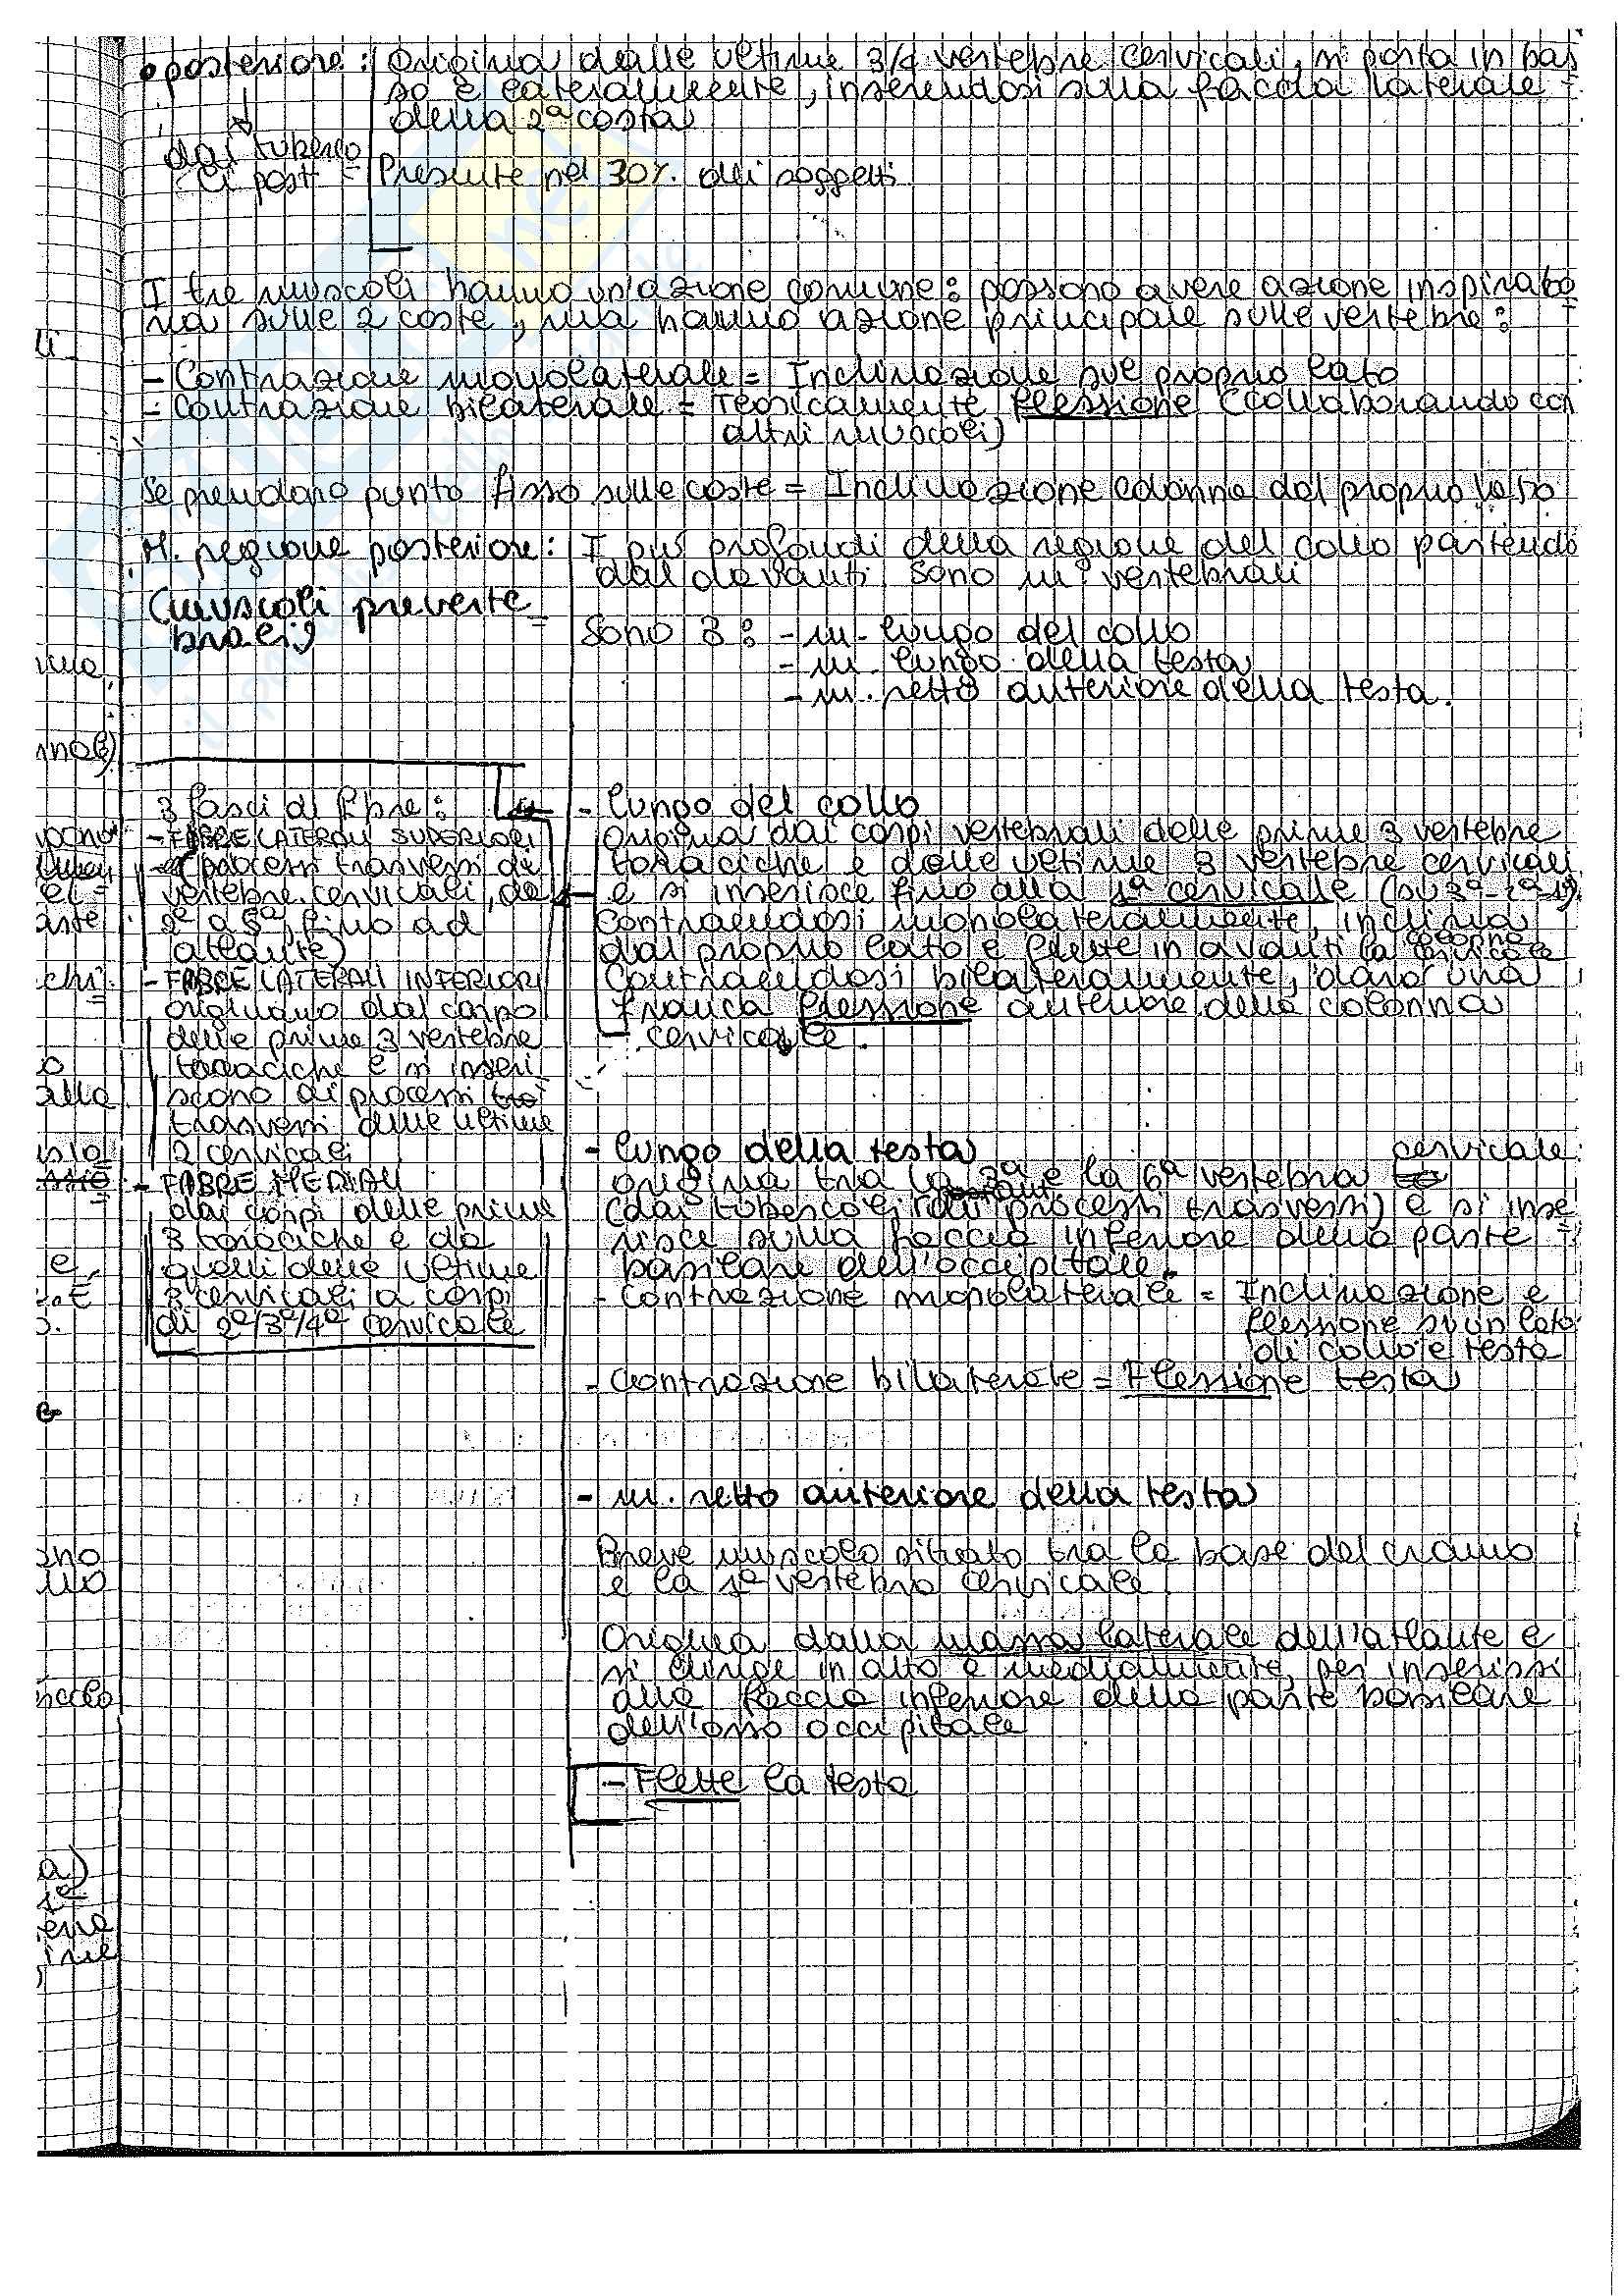 • posteriore: Origina dalle ultime 3/4 vertebre cervicali, si porta in bas
so e lateralmente, inserendosi sulla faccia laterale
della 2ª costa
dai tuberco
li post
Presente nel 30% dei soggetti
I tre muscoli hanno un'azione comune: possono avere azione inspirato
ria sulle 2 coste, ma hanno azione principale sulle vertebre:
- Contrazione monolaterale = Inclinazione sul proprio lato
- Contrazione bilaterale = Teoricamente flessione (collaborando con
altri muscoli)
Se prendono punto fisso sulle coste = Inclinazione colonna dal proprio lato
M. regione posteriore: I più profondi della regione del collo partendo
dal davanti sono m. vertebrali
(muscoli preverte
brali)
Sono 3: - m. lungo del collo
- m. lungo della testa
- m. retto anteriore della testa.
3 fasci di fibre:
- FIBRE LATERALI SUPERIORI
processi trasversi di
vertebre cervicali, da
2ª a 5ª, fino ad
atlante)
- FIBRE LATERALI INFERIORI
originano dal corpo
delle prime 3 vertebre
toraciche e si inseri
scono ai processi
trasversi delle ultime
2 cervicali
- FIBRE MEDIALI
dai corpi delle prime
3 toraciche e da
quelli delle ultime
3 cervicali a corpi
di 2ª/3ª/4ª cervicale
- lungo del collo
Origina dai corpi vertebrali delle prime 3 vertebre
toraciche e dalle ultime 3 vertebre cervicali
e si inserisce fino alla 1ª cervicale (su 3ª-2ª-1ª)
Contraendosi monolateralmente, inclina
dal proprio lato e flette in avanti la colonna cervicale
Contraendosi bilateralmente, danno una
franca flessione anteriore della colonna
cervicale.
- lungo della testa
origina tra la 3ª e la 6ª vertebra cervicale
(dai tubercoli dei processi trasversi) e si inse
risce sulla faccia inferiore della parte
basilare dell'occipitale.
- Contrazione monolaterale = Inclinazione e
flessione su un lato
di collo e testa
- Contrazione bilaterale = Flessione testa
- m. retto anteriore della testa
Breve muscolo situato tra la base del cranio
e la 1ª vertebra cervicale.
Origina dalla massa laterale dell'atlante e
si dirige in alto e medialmente, per inserirsi
alla faccia inferiore della parte basilare
dell'osso occipitale
- Flette la testa